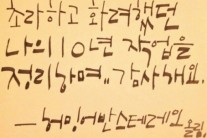 초라하고 화려했던
나의 10년 작업을
정리하며.. 감사해요.
— 허밍어반스테레오 올림.